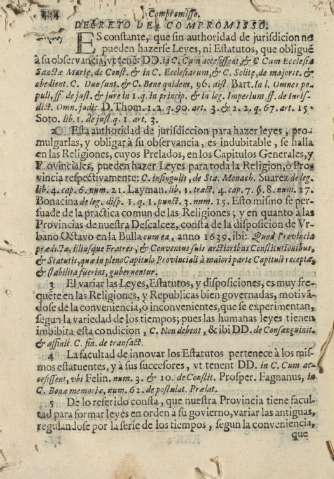 Compromisso.
DECRETO DE COMPROMISSO.
ES constante, que sin authoridad de jurisdicion no
pueden hazerse Leyes, ni Estatutos, que obliguẽ
à su observancia, vt tenẽt DD. in C. Cum accessissent, & C. Cum Ecclesia
Sanctæ Mariæ, de Const. & in C. Ecclesiarum, & C. Solitæ, de majorit. &
obedient. C. Due sunt, & C. Bene quidem, 96. dist. Bart. in l. Omnes po-
puli, ff. de just. & jure in l. 1. in princip. & in leg. Imperium ff. de juris-
dict. Omn. judic. D. Thom. 1. 2. q. 90. art. 3. & 2. 2. q. 67. art. 15.
Soto. lib. 1. de just. q. 1. art. 3.
2 Esta authoridad de jurisdiccion para hazer leyes, pro-
mulgarlas, y obligar à su observancia, es indubitable, se halla
en las Religiones, cuyos Prelados, en los Capitulos Generales, y
Provinciales, pueden hazer Leyes para toda la Religion, ò Pro-
vincia respectivamente: C. in singulis de Sta. Monach. Suarez de leg.
lib. 4. cap. 6. num. 21. Layman. lib. 1. tract. 4. cap. 7. §. 8. num. 27.
Bonacina de leg. disp. 1. q. 1. punct. 3. num. 15. Esto mismo se per-
suade de la practica comun de las Religiones; y en quanto à las
Provincias de nuestra Descalcez, consta de la disposicion de Vr-
bano Octavo en la Bulla anno 1639. ibi: Quod Provincia
prædictæ, illiusque Fratres, & Conventus suis melioribus Constitutionibus,
& Statutis, quæ in pleno Capitulo Provinciali à maiori parte Capituli receptæ,
& stabilita fuerint, gubernentur.
3 El variar las Leyes, Estatutos, y disposiciones, es muy fre-
quẽte en las Religiones, y Republicas bien governadas, motivã-
dose de la conveniencia, ò inconvenientes, que se experimentan,
segun la variedad de los tiempos; pues las humanas leyes tienen
imbibita esta condicion, C. Non debent, & ibi DD. de Consanguinit.
& affinit. C. fin. de transact.
4 La facultad de innovar los Estatutos pertenece à los mis-
mos estatuentes, y à sus successores, vt tenent DD. in C. Cum ac-
cessissent, vbi Felin. num. 3. & 10. de Constit. Prosper. Fagnanus, in
C. Bonæ memoriæ, num. 62. de postulat. Prælat.
5 De lo referido consta, que nuestra Provincia tiene facul-
tad para formar leyes en orden à su govierno, variar las antiguas,
regulandose por la serie de los tiempos, segun la conveniencia,
que